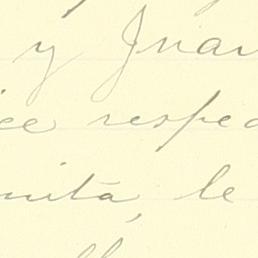 y Juan
ice respec
nita, le